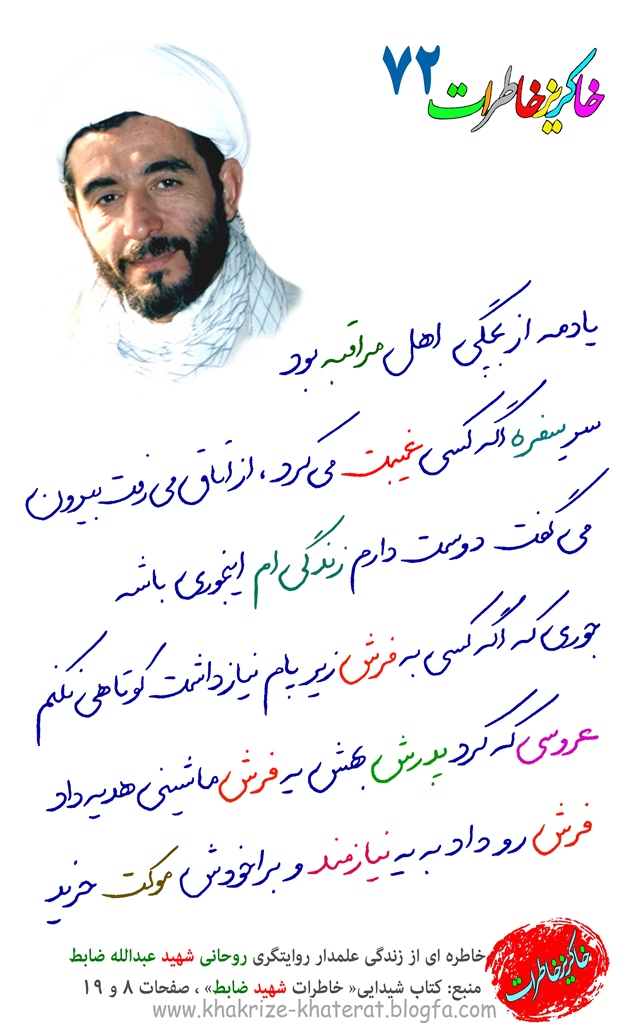 خاکریز خاطرات ۷۲
یادمه از بچگی اهل مراقبه بود
سر سفره اگه کسی غیبت می کرد، از اتاق می رفت بیرون
می گفت دوست دارم زندگی ام اینجوری باشه
جوری که اگه کسی به فرش زیر پام نیاز داشت کوتاهی نکنم
عروسی که کرد پدرش بهش یه فرش ماشینی هدیه داد
فرش رو داد به یه نیازمند و برا خودش موکت خرید
خاطره ای از زندگی علمدار روایتگری روحانی شهید عبدالله ضابط
منبع: کتاب شیدایی« خاطرات شهید ضابط» ، صفحات ۸ و ۱۹
خاکریز خاطرات
www.khakrize-khaterat.blogfa.com